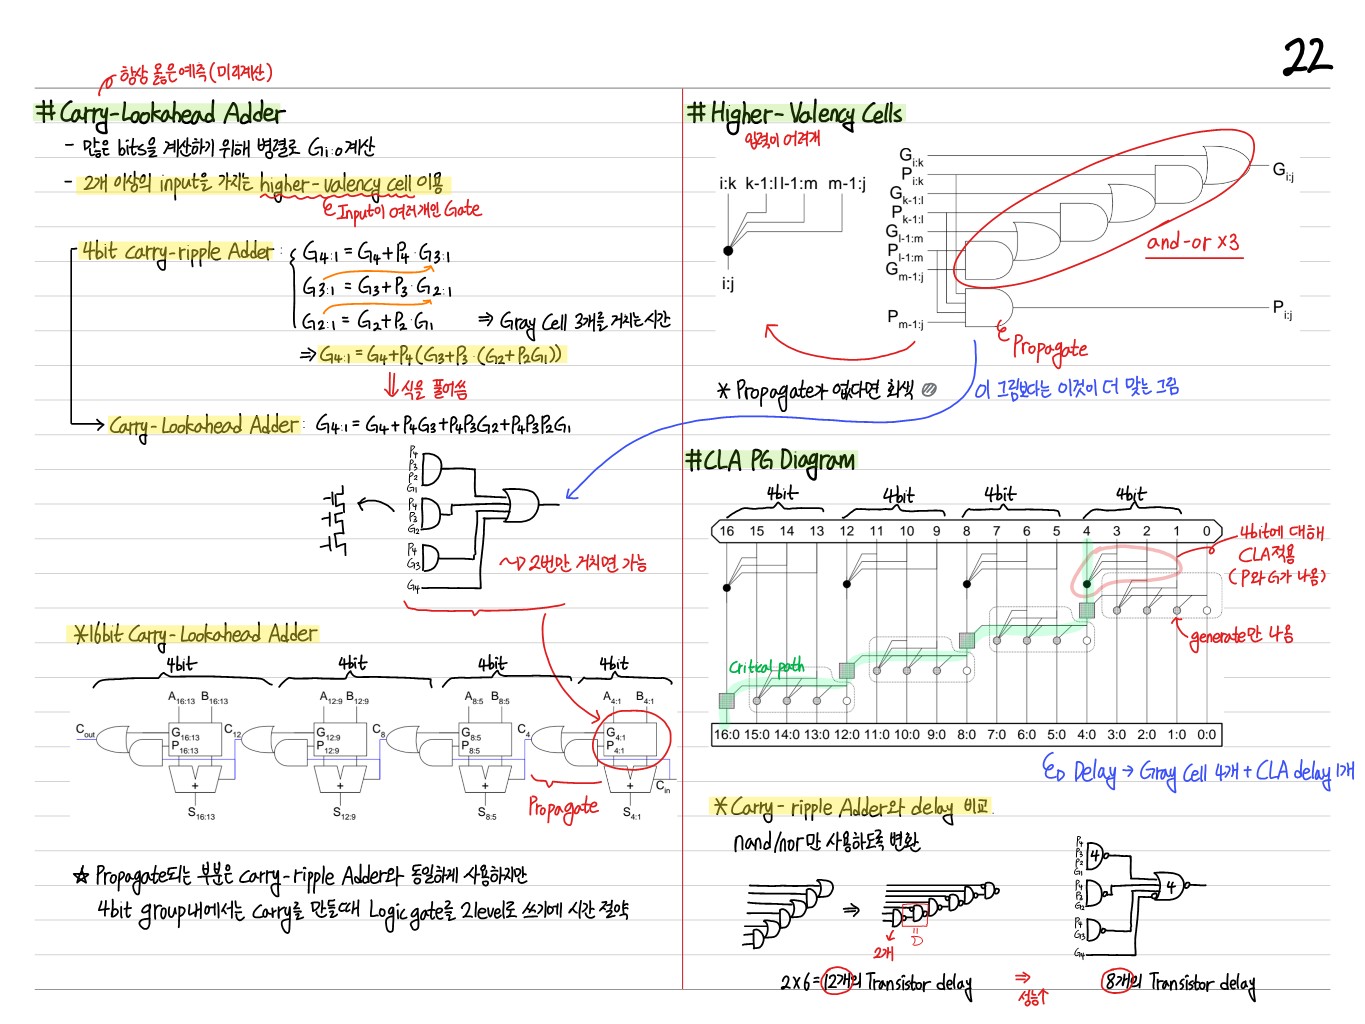 22
항상 옳은 예측 (미리계산)
# Carry-Lookahead Adder
- 많은 bits을 계산하기 위해 병렬로 Gi:0 계산
- 2개 이상의 input을 가지는 higher-valency cell 이용
Input이 여러개인 Gate
4bit carry-ripple Adder : G4:1 = G4+P4·G3:1
G3:1 = G3+P3·G2:1
G2:1 = G2+P2·G1 ⇒ Gray Cell 3개를 거치는 시간
⇒ G4:1 = G4+P4(G3+P3·(G2+P2G1))
⇓ 식을 풀어씀
Carry-Lookahead Adder : G4:1 = G4+P4G3+P4P3G2+P4P3P2G1
P4
P3
P2
G1
P4
P3
G2
P4
G3
G4
~→ 2번만 거치면 가능
*16bit Carry-Lookahead Adder
4bit 4bit 4bit 4bit
A16:13 B16:13 A12:9 B12:9 A8:5 B8:5 A4:1 B4:1
Cout G16:13 C12 G12:9 C8 G8:5 C4 G4:1
P16:13 P12:9 P8:5 P4:1
+ + + + Cin
S16:13 S12:9 S8:5 S4:1
Propagate
☆ Propagate되는 부분은 carry-ripple Adder와 동일하게 사용하지만
4bit group내에서는 Carry를 만들때 Logic gate를 2level로 쓰기에 시간 절약
# Higher-Valency Cells
입력이 여러개
i:k k-1:l l-1:m m-1:j
i:j
Gi:k
Pi:k
Gk-1:l
Pk-1:l
Gl-1:m
Pl-1:m
Gm-1:j
Pm-1:j
Gi:j
Pi:j
and-or x3
Propagate
* Propagate가 없다면 회색
이 그림보다는 이것이 더 맞는 그림
#CLA PG Diagram
4bit 4bit 4bit 4bit
16 15 14 13 12 11 10 9 8 7 6 5 4 3 2 1 0
4bit에 대해
CLA적용
(P와 G가 나옴)
generate만 나옴
Critical path
16:0 15:0 14:0 13:0 12:0 11:0 10:0 9:0 8:0 7:0 6:0 5:0 4:0 3:0 2:0 1:0 0:0
Delay → Gray Cell 4개 + CLA delay 1개
*Carry-ripple Adder와 delay 비교
nand/nor만 사용하도록 변환
⇒
2개
D
P4
P3
P2
G1
4
P4
P3
G2
P4
G3
G4
4
2x6=12개의 Transistor delay ⇒ 8개의 Transistor delay
성능↑